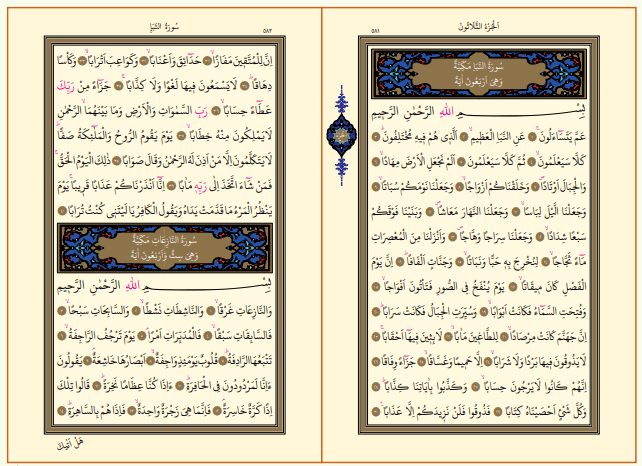 اَلْجُزْءُ الثَّلَاثُونَ
٥٨١
سُورَةُ النَّبَأِ مَكِّيَّةٌ
وَهِيَ اَرْبَعُونَ اٰيَةً
بِسْمِ اللّٰهِ الرَّحْمٰنِ الرَّحِيمِ
عَمَّ يَتَسَٓاءَلُونَۚ ﴿١﴾ عَنِ النَّبَأِ الْعَظِيمِۙ ﴿٢﴾ اَلَّذ۪ي هُمْ ف۪يهِ مُخْتَلِفُونَۜ ﴿٣﴾
كَلَّا سَيَعْلَمُونَۙ ﴿٤﴾ ثُمَّ كَلَّا سَيَعْلَمُونَ ﴿٥﴾ اَلَمْ نَجْعَلِ الْاَرْضَ مِهَادًاۙ ﴿٦﴾
وَالْجِبَالَ اَوْتَادًاۖ ﴿٧﴾ وَخَلَقْنَاكُمْ اَزْوَاجًاۙ ﴿٨﴾ وَجَعَلْنَا نَوْمَكُمْ سُبَاتًاۙ ﴿٩﴾
وَجَعَلْنَا الَّيْلَ لِبَاسًاۙ ﴿١٠﴾ وَجَعَلْنَا النَّهَارَ مَعَاشًاۖ ﴿١١﴾ وَبَنَيْنَا فَوْقَكُمْ
سَبْعًا شِدَادًاۙ ﴿١٢﴾ وَجَعَلْنَا سِرَاجًا وَهَّاجًاۖ ﴿١٣﴾ وَاَنْزَلْنَا مِنَ الْمُعْصِرَاتِ
مَٓاءً ثَجَّاجًاۙ ﴿١٤﴾ لِنُخْرِجَ بِه۪ حَبًّا وَنَبَاتًاۙ ﴿١٥﴾ وَجَنَّاتٍ اَلْفَافًاۜ ﴿١٦﴾ اِنَّ يَوْمَ
الْفَصْلِ كَانَ م۪يقَاتًاۙ ﴿١٧﴾ يَوْمَ يُنْفَخُ فِي الصُّورِ فَتَأْتُونَ اَفْوَاجًاۙ ﴿١٨﴾
وَفُتِحَتِ السَّمَٓاءُ فَكَانَتْ اَبْوَابًاۙ ﴿١٩﴾ وَسُيِّرَتِ الْجِبَالُ فَكَانَتْ سَرَابًاۜ ﴿٢٠﴾
اِنَّ جَهَنَّمَ كَانَتْ مِرْصَادًاۙ ﴿٢١﴾ لِلطَّاغ۪ينَ مَاٰبًاۙ ﴿٢٢﴾ لَابِث۪ينَ ف۪يهَٓا اَحْقَابًاۚ ﴿٢٣﴾
لَا يَذُوقُونَ ف۪يهَا بَرْدًا وَلَا شَرَابًاۙ ﴿٢٤﴾ اِلَّا حَم۪يمًا وَغَسَّاقًاۙ ﴿٢٥﴾ جَزَٓاءً وِفَاقًاۜ ﴿٢٦﴾
اِنَّهُمْ كَانُوا لَا يَرْجُونَ حِسَابًاۙ ﴿٢٧﴾ وَكَذَّبُوا بِاٰيَاتِنَا كِذَّابًاۜ ﴿٢٨﴾
وَكُلَّ شَيْءٍ اَحْصَيْنَاهُ كِتَابًاۙ ﴿٢٩﴾ فَذُوقُوا فَلَنْ نَز۪يدَكُمْ اِلَّا عَذَابًا۟ ﴿٣٠﴾
سُورَةُ النَّبَأِ
٥٨٢
اِنَّ لِلْمُتَّق۪ينَ مَفَازًاۙ ﴿٣١﴾ حَدَٓائِقَ وَاَعْنَابًاۙ ﴿٣٢﴾ وَكَوَاعِبَ اَتْرَابًاۙ ﴿٣٣﴾ وَكَأْسًا
دِهَاقًاۜ ﴿٣٤﴾ لَا يَسْمَعُونَ ف۪يهَا لَغْوًا وَلَا كِذَّابًاۚ ﴿٣٥﴾ جَزَٓاءً مِنْ رَبِّكَ
عَطَٓاءً حِسَابًاۙ ﴿٣٦﴾ رَبِّ السَّمٰوَاتِ وَالْاَرْضِ وَمَا بَيْنَهُمَا الرَّحْمٰنِ
لَا يَمْلِكُونَ مِنْهُ خِطَابًاۚ ﴿٣٧﴾ يَوْمَ يَقُومُ الرُّوحُ وَالْمَلٰٓئِكَةُ صَفًّاۜ
لَا يَتَكَلَّمُونَ اِلَّا مَنْ اَذِنَ لَهُ الرَّحْمٰنُ وَقَالَ صَوَابًا ﴿٣٨﴾ ذٰلِكَ الْيَوْمُ الْحَقُّۚ
فَمَنْ شَٓاءَ اتَّخَذَ اِلٰى رَبِّه۪ مَاٰبًا ﴿٣٩﴾ اِنَّٓا اَنْذَرْنَاكُمْ عَذَابًا قَر۪يبًاۚ يَوْمَ
يَنْظُرُ الْمَرْءُ مَا قَدَّمَتْ يَدَاهُ وَيَقُولُ الْكَافِرُ يَا لَيْتَن۪ي كُنْتُ تُرَابًا ﴿٤٠﴾
سُورَةُ النَّازِعَاتِ مَكِّيَّةٌ
وَهِيَ سِتٌّ وَاَرْبَعُونَ اٰيَةً
بِسْمِ اللّٰهِ الرَّحْمٰنِ الرَّحِيمِ
وَالنَّازِعَاتِ غَرْقًاۙ ﴿١﴾ وَالنَّاشِطَاتِ نَشْطًاۙ ﴿٢﴾ وَالسَّابِحَاتِ سَبْحًاۙ ﴿٣﴾
فَالسَّابِقَاتِ سَبْقًاۙ ﴿٤﴾ فَالْمُدَبِّرَاتِ اَمْرًاۢ ﴿٥﴾ يَوْمَ تَرْجُفُ الرَّاجِفَةُۙ ﴿٦﴾
تَتْبَعُهَا الرَّادِفَةُۜ ﴿٧﴾ قُلُوبٌ يَوْمَئِذٍ وَاجِفَةٌۙ ﴿٨﴾ اَبْصَارُهَا خَاشِعَةٌۢ ﴿٩﴾ يَقُولُونَ
ءَاِنَّا لَمَرْدُودُونَ فِي الْحَافِرَةِۜ ﴿١٠﴾ ءَاِذَا كُنَّا عِظَامًا نَخِرَةًۜ ﴿١١﴾ قَالُوا تِلْكَ
اِذًا كَرَّةٌ خَاسِرَةٌۢ ﴿١٢﴾ فَاِنَّمَا هِيَ زَجْرَةٌ وَاحِدَةٌۙ ﴿١٣﴾ فَاِذَا هُمْ بِالسَّاهِرَةِۜ ﴿١٤﴾
هَلْ اَتٰيكَ